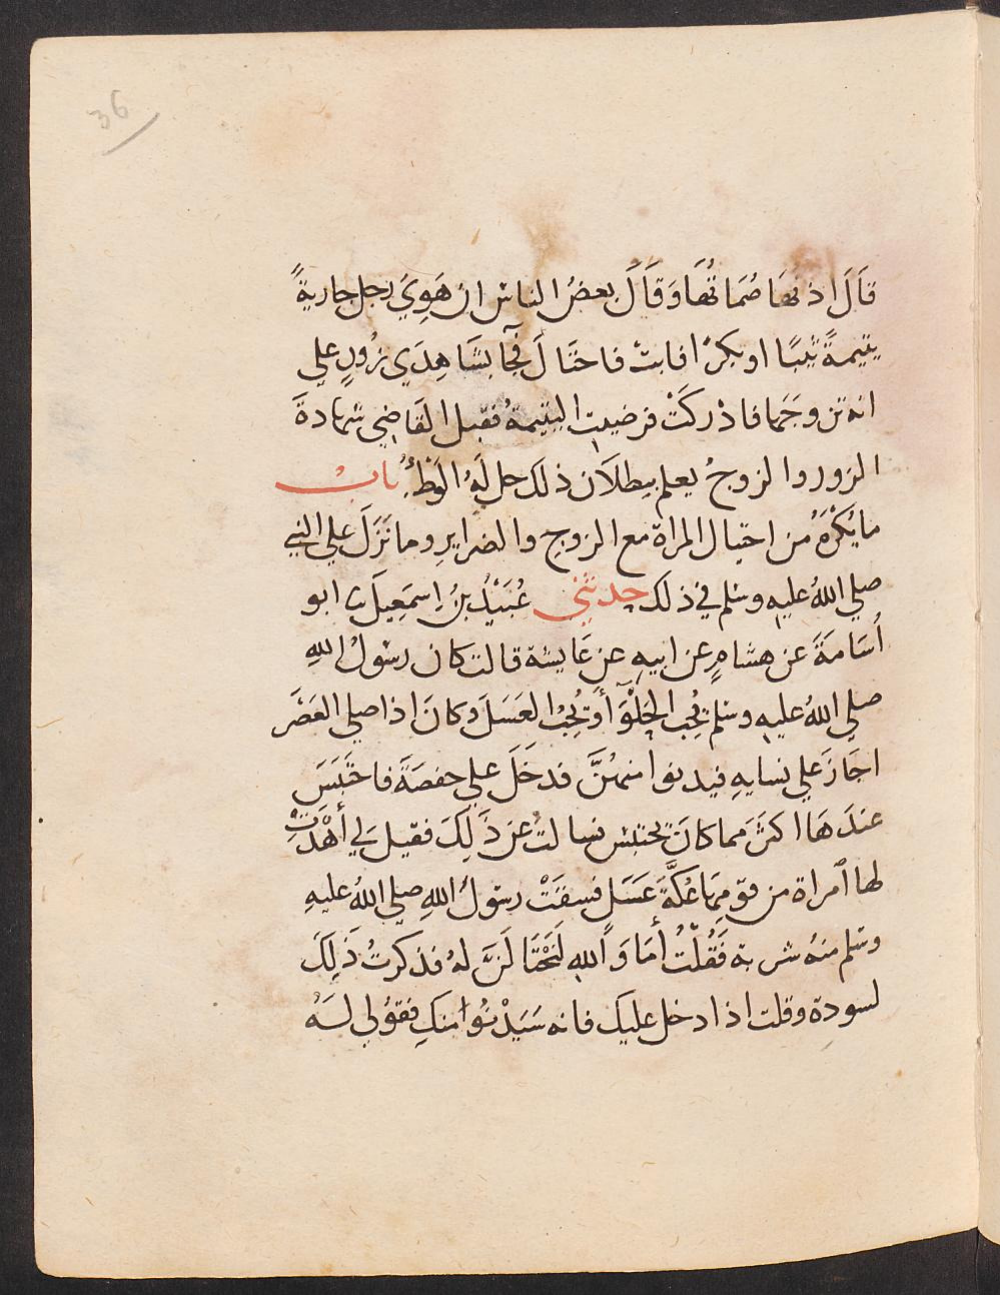 36
قَالَ اذنهَا صُمَاتُهَا وَقَالَ بعضُ الناسِ ان هَوِيَ رجل جاريةً
يتيمةً ثيبًا او بكرًا فابت فاحتَالَ فجآ بشَاهِدَي زُورٍ علي
انه تزوجَها فادْركَتْ فرضيت اليتيمةُ فقبل القَاضِي شهادةَ
الزور والزوجُ يعلم ببطلان ذلك حل لَهُ الوَطْءُ باب
ما يُكْرَهُ من احتيال المراة مع الزوج والضرايرِ وما نَزَلَ علي النبي
صلي اللهُ عليهِ وسلم في ذلك حدثني عُبَيْدُ بنُ اِسمَعِيلَ ثا ابو
اُسَامَةَ عن هشامٍ عن ابيهِ عن عَايشة قالت كان رسُولُ اللهِ
صلي اللهُ عليهِ وسلم يُحِب الحَلْوَآ وَيُحِبُ العَسَلَ وكانَ اذا صلي العَصْرَ
اجَازَ علي نسايهِ فيدنوا منهُنَّ فدخَلَ علي حفصَةَ فاحتَبَسَ
عندَهَا اكثَرَ مما كانَ يحتبس فسالتُ عن ذَلِكَ فقيل لِي أَهْدَتْ
لها امراة من قومِهَا عُكَّةَ عَسَلٍ فسقَتْ رسُولَ اللهِ صلي اللهُ عليهِ
وسلم منهُ شربة فَقُلْتُ أَمَا وَاللهِ لَنَحْتَالَنَّ لهُ فذكرتُ ذَلِكَ
لسودةِ وقلت اذا دخل عليك فانه سَيَدْنُوا منكِ فقوُلي لَهُ